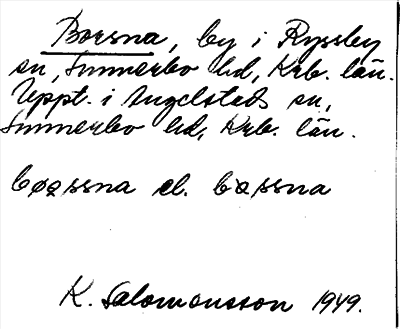 Borsna, by i Ryssby
sn, Sunnerbo hd, Krb. län.
Uppt. i Angelstads sn,
Sunnerbo hd, Krb. län.
bøssna el. bassna
K. Salomonsson 1949.